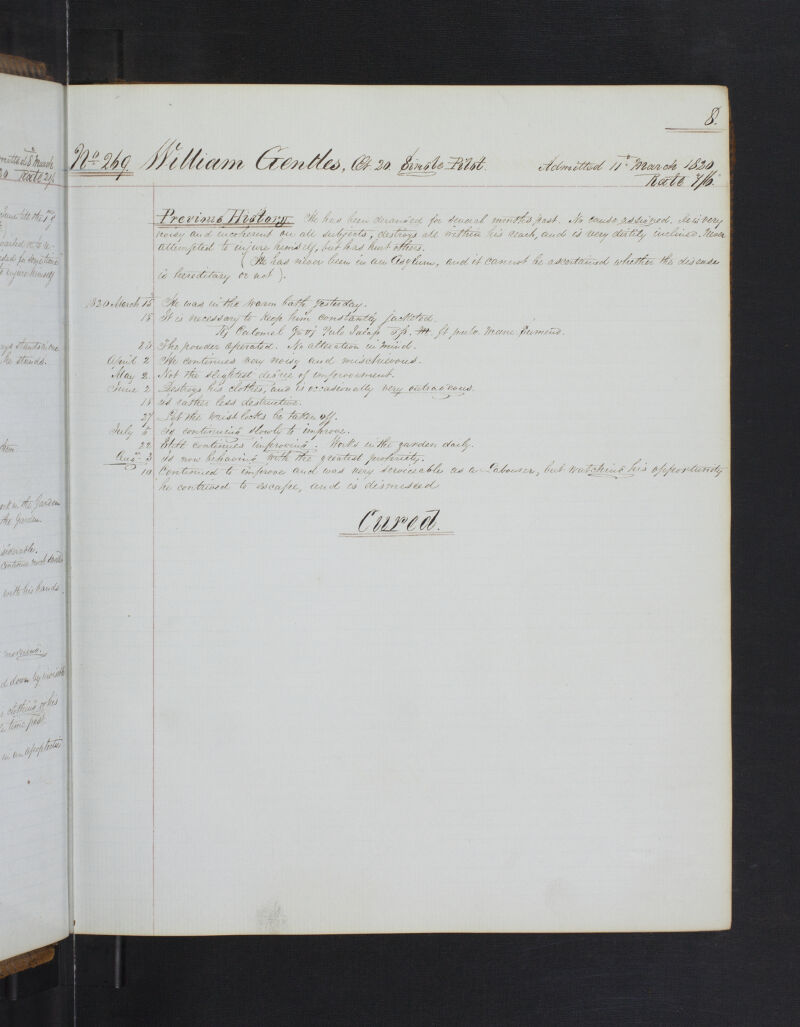 8.
No 269 William Gentles, Æt 20. Single. Pilot. Admitted 11th March 1820.
Rate 7/6.
Previous History. He has been deranged for several months past. No cause assigned. He is very
noisy and incoherent on all subjects, destroys all within his reach, and is very dirtily inclined. Never
attempted to injure himself, but has hurt others.
(He has never been in an Asylum, and it cannot be ascertained whether the disease
is hereditary or not).
1820 March 15th He was in the warm bath yesterday.
18 It is necessary to keep him constantly jacketed.
Calomel Pulv Jalap ft pulv. mane sumend.
20 The powder operated. No alteration in mind.
April 2 He continues very noisy and mischievous.
May 2 Not the slightest degree of improvement.
June 2 Destroys his clothes, and is occasionally very outrageous.
18 is rather less destructive.
27 Let the wrist locks be taken off.
July 5 Is continuing slowly to improve.
22 Still continues improving. Works in the garden daily.
Aug. 3 Is now behaving with the greatest propriety.
10 Continued to improve and was very serviceable as a Labourer, but watching his opportunity
he contrived to escape, and is dismissed
Cured.
March
Rate
himself
he stands.
in the Garden
the Garden.
siderable.
with his hands.
down by
clothing of his
time past
in an apoplectic